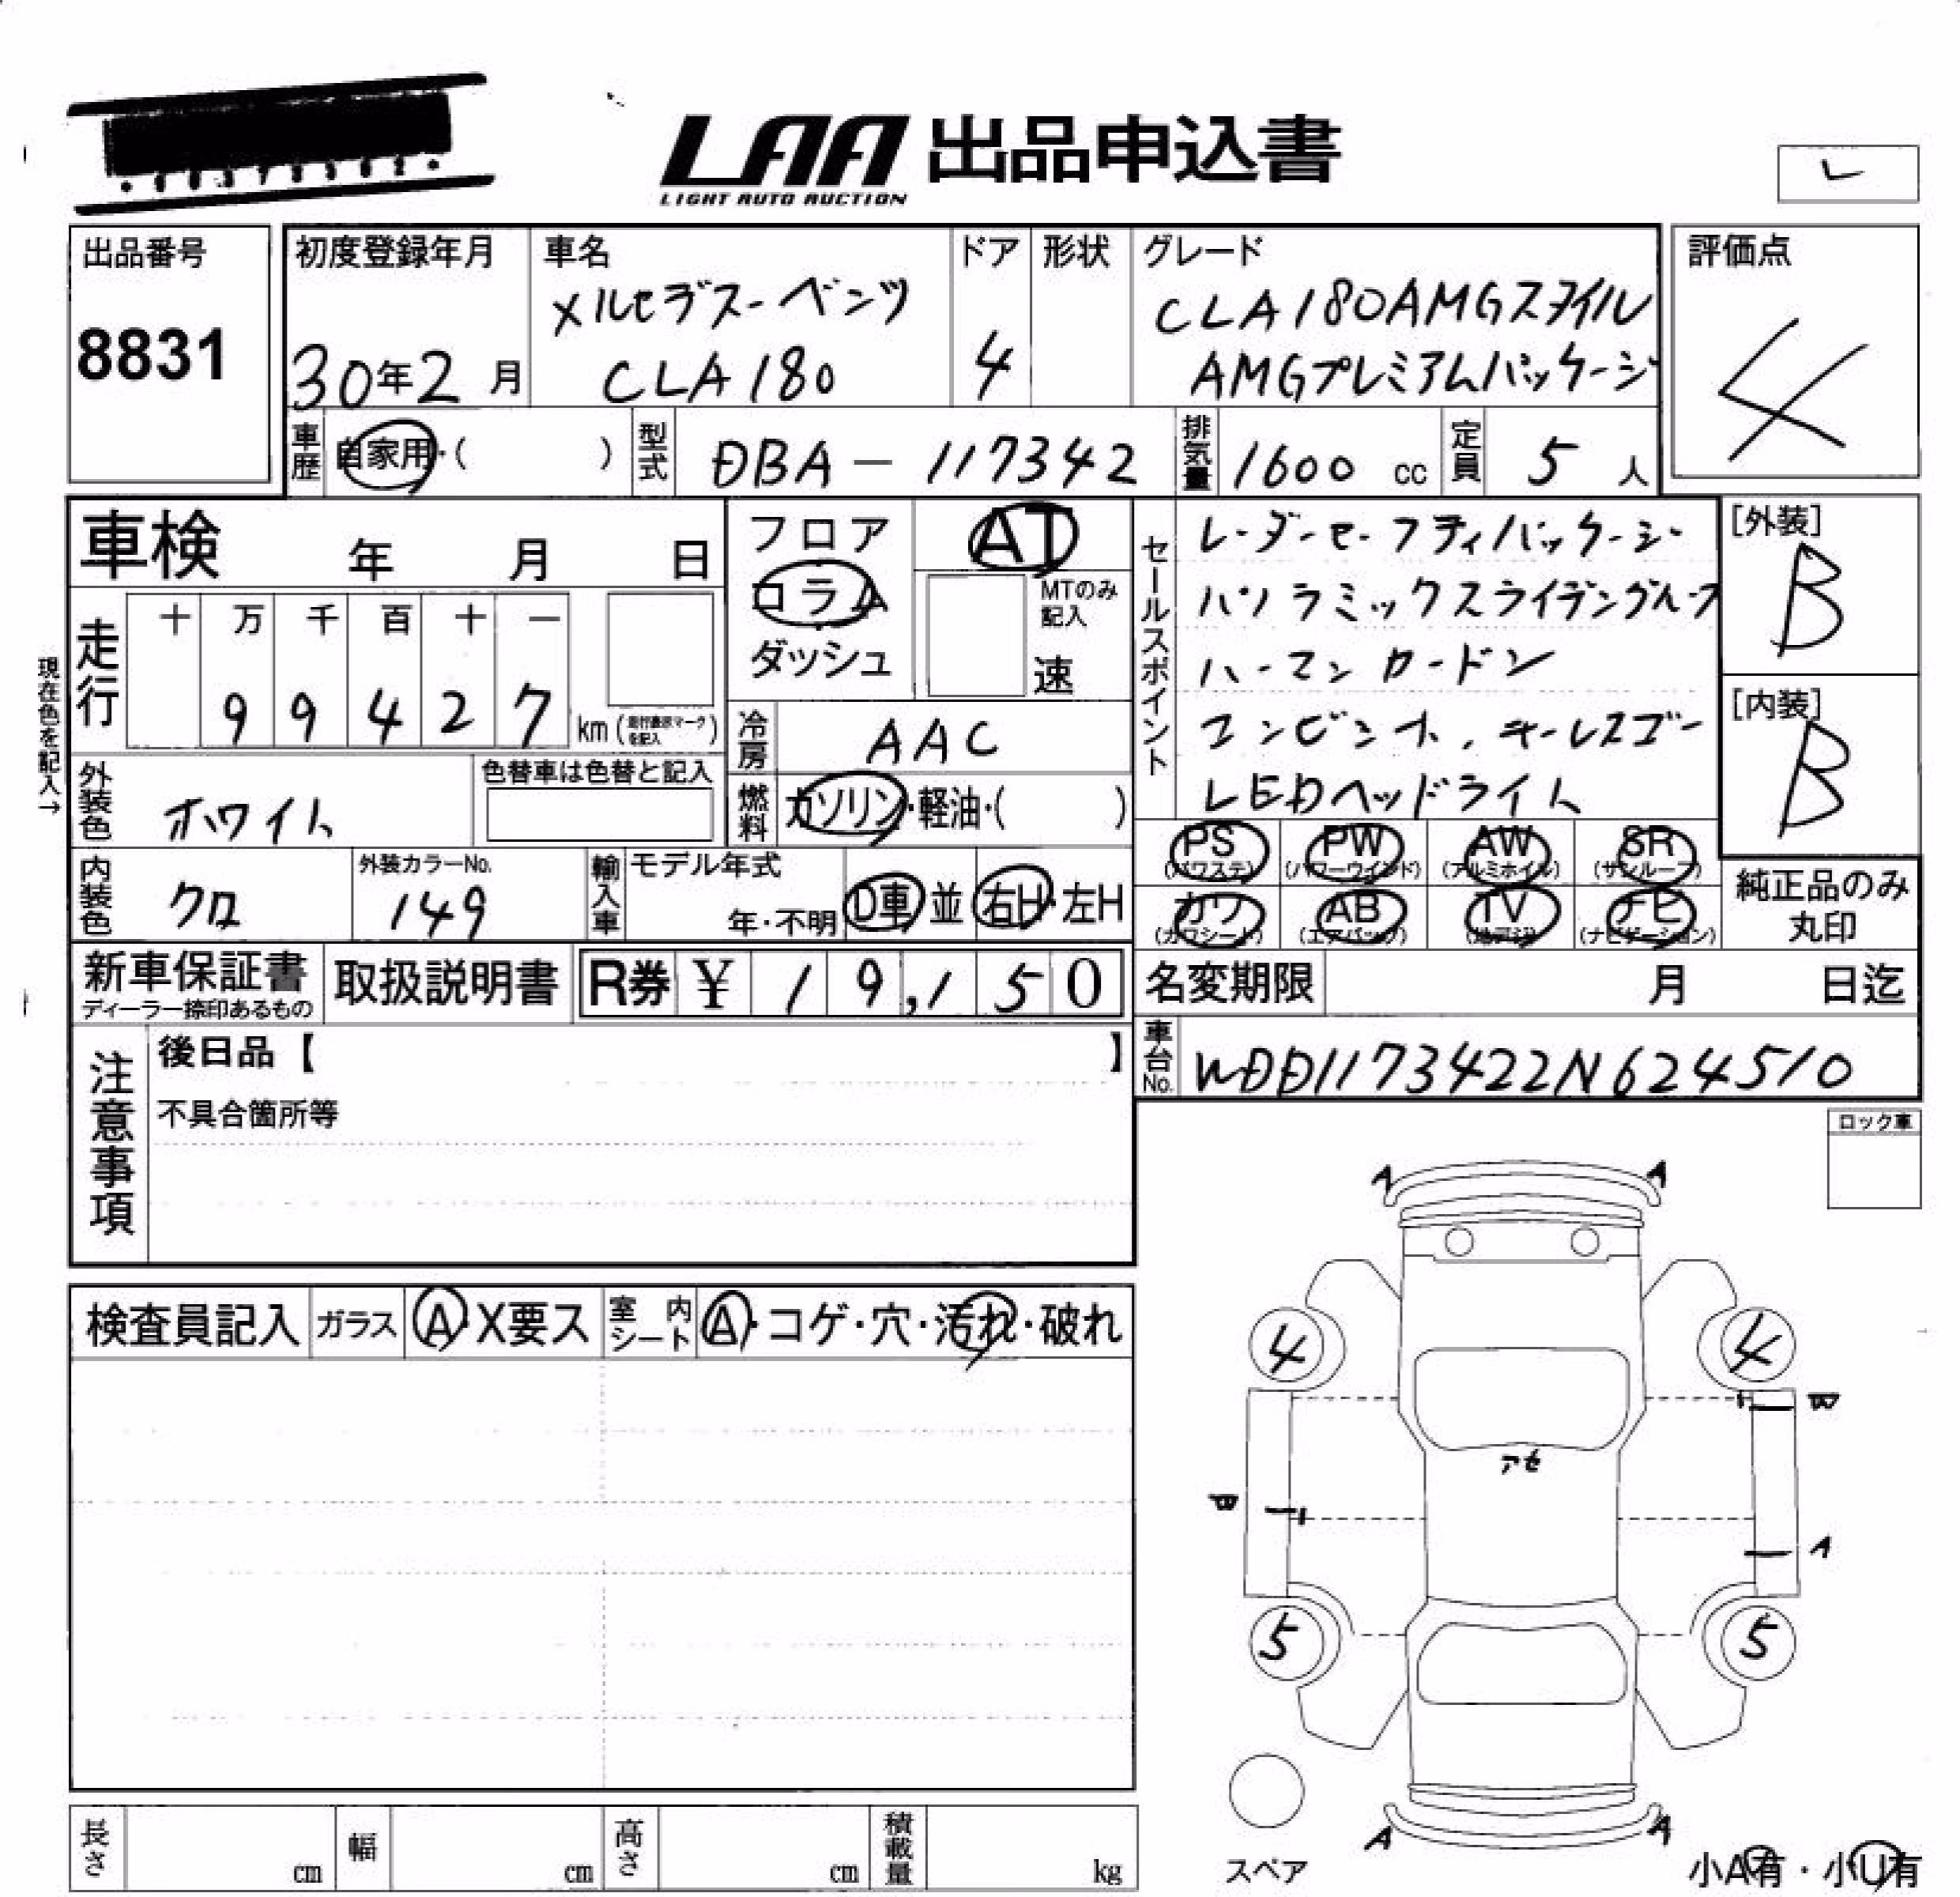 LAA 出品申込書
LIGHT AUTO AUCTION
出品番号
8831
初度登録年月
30年2月
車名
メルセデスーベンツ
CLA180
ドア
4
形状
グレード
CLA180AMGスタイル
AMGプレミアムパッケージ
評価点
4
車歴
自家用・( )
型式
DBA-117342
排気量
1600 cc
定員
5 人
車検 年 月 日
現在色を記入→
走行
十 万 千 百 十 一
9 9 4 2 7
km(走行表示マークを記入)
フロア
コラム
ダッシュ
AT
MTのみ
記入
速
セールスポイント
レーダーセーフティパッケージー
パノラミックスライデングルーフ
ハーマンカードン
コンビシート、キーレスゴー
LEDヘッドライト
[外装]
B
[内装]
B
冷房
AAC
燃料
ガソリン・軽油・( )
外装色
ホワイト
色替車は色替と記入
内装色
クロ
外装カラーNo.
149
輸入車
モデル年式
年・不明
D車 並
右H・左H
PS
(パワステ)
PW
(パワーウインド)
AW
(アルミホイル)
SR
(サンルーフ)
カワ
(カワシート)
AB
(エアバック)
TV
(地デジ)
ナビ
(ナビゲーション)
純正品のみ
丸印
新車保証書
ディーラー捺印あるもの
取扱説明書
R券 ¥ 19,150
名変期限 月 日迄
車台No.
WDD1173422N624510
注意事項
後日品【 】
不具合箇所等
ロック車
検査員記入
ガラス
A・X要ス
室内シート
A・コゲ・穴・汚れ・破れ
A A
4 4
W
アセ
A
5 5
A A
スペア
小A有・小U有
長さ cm
幅 cm
高さ cm
積載量 kg